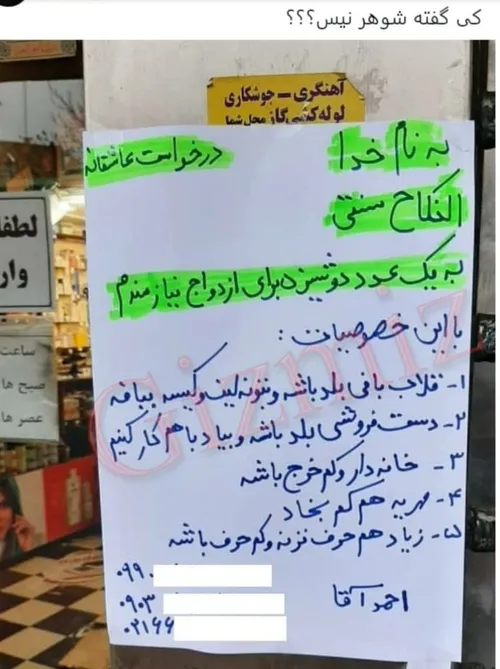 کی گفته شوهر نیس؟؟؟
آهنگری – جوشکاری
لوله کشی گاز محل شما
به نام خدا
درخواست عاشقانه
النکاح سنتی
به یک عدد دوشیزه برای ازدواج نیازمندم
با این خصوصیات:
۱- قلاب بافی بلد باشه و بتونه لیف و کیسه ببافه
۲- دست فروشی بلد باشه و بیاد باهم کار کنیم
۳- خانه دار و کم خرج باشه
۴- مهریه هم کم بخاد
۵- زیاد هم حرف نزنه و کم حرف باشه
۰۹۹۰
۰۹۰۳
۰۲۱۶۶
احمد آقا
لطفا
وار
ساعت
صبح ها
عصر ها
Gizmiz